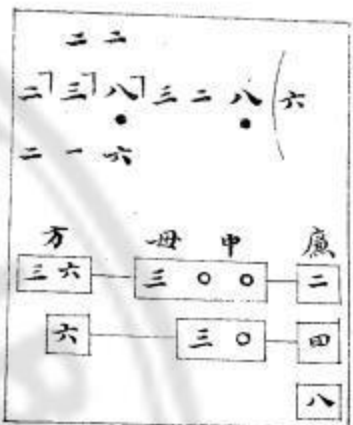 二 二
二 三 八 三 二 八 六
二 一 六
方 毋 申 廉
三六 三〇〇 二
六 三〇 四
八